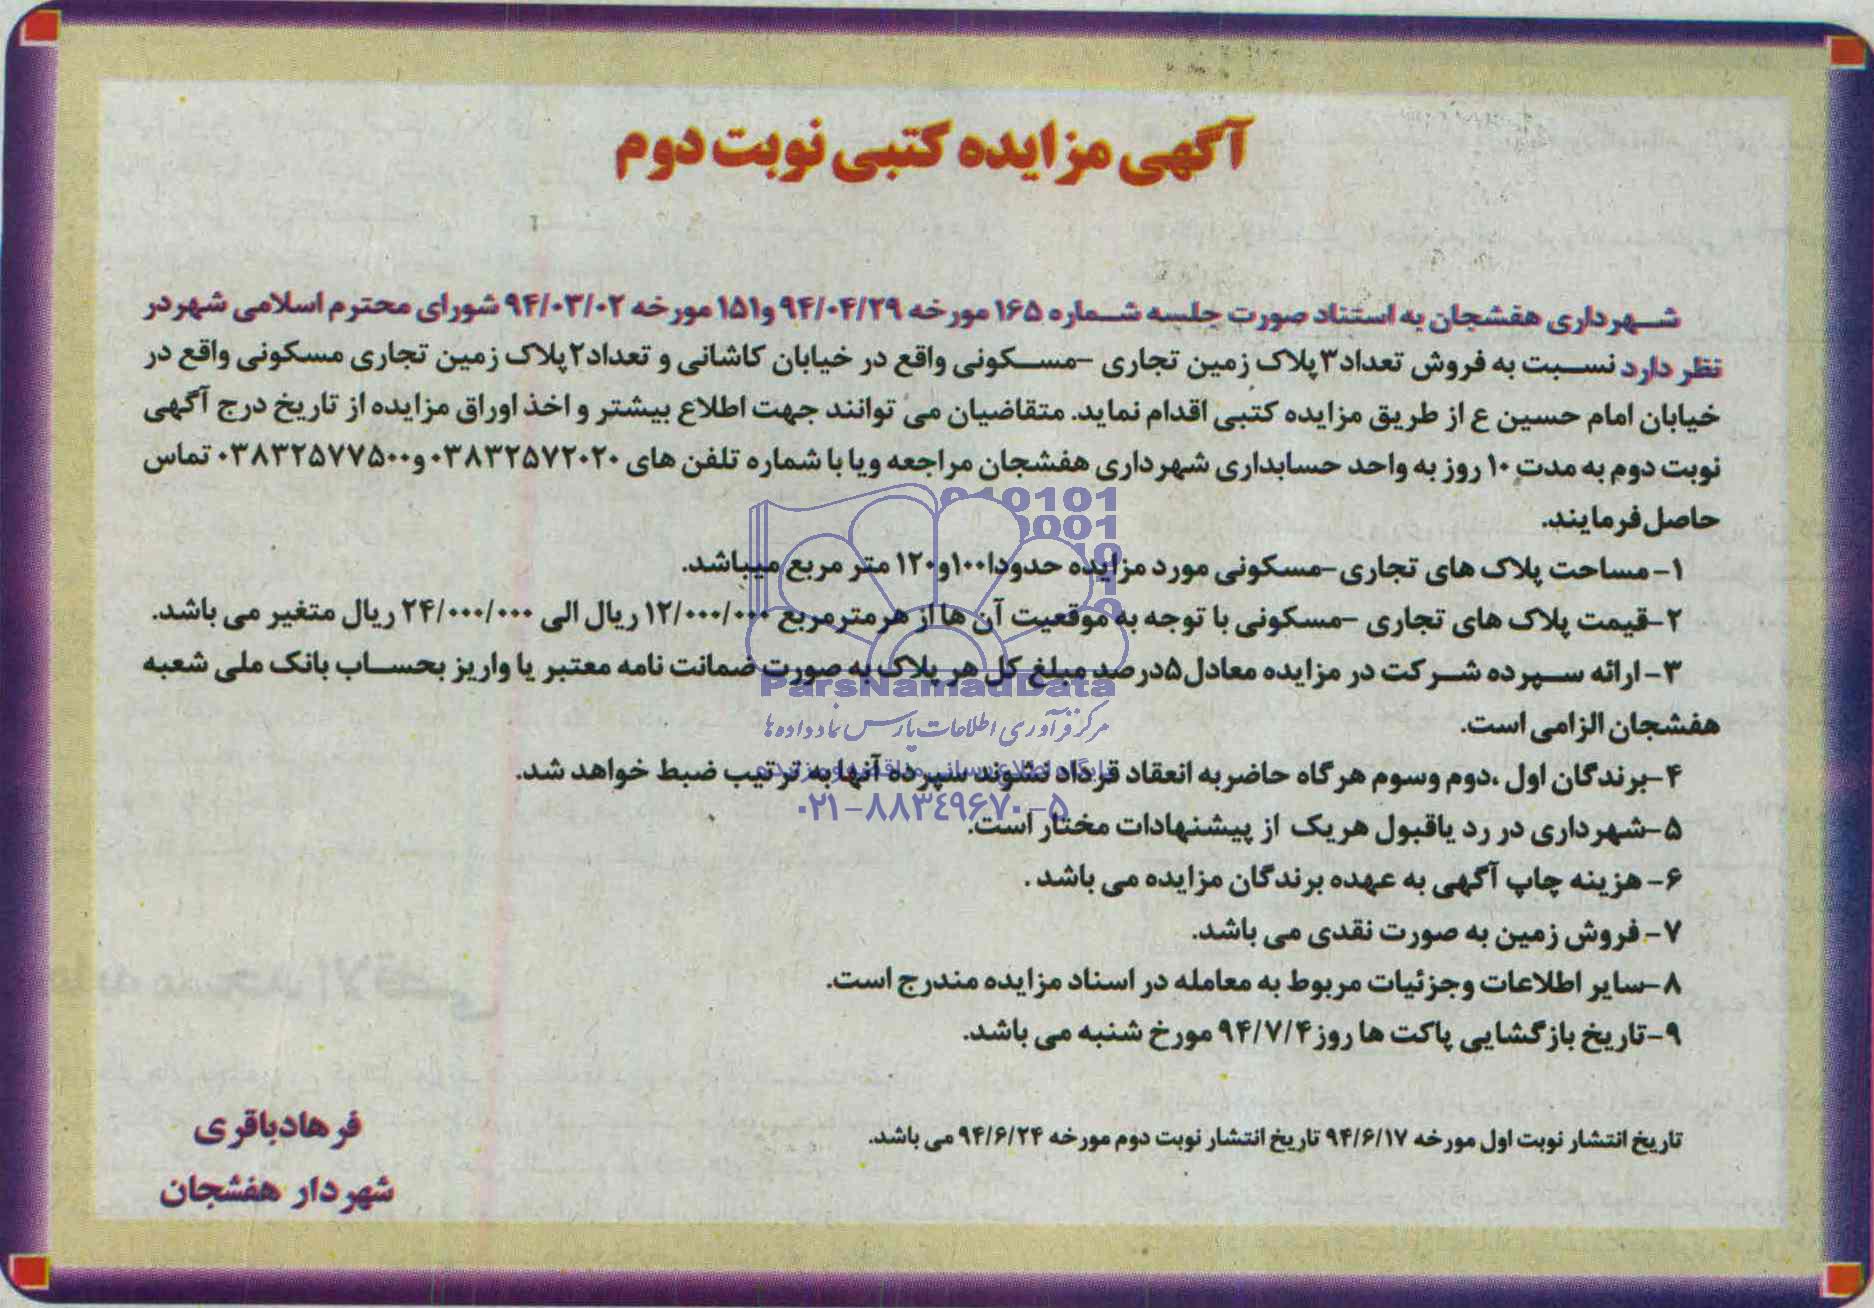 آگهی مزایده کتبی نوبت دوم
شهرداری هفشجان به استناد صورت جلسه شماره ۱۶۵ مورخه ۹۴/۰۴/۲۹ و۱۵۱ مورخه ۹۴/۰۳/۰۲ شورای محترم اسلامی شهر در
نظر دارد نسبت به فروش تعداد۳پلاک زمین تجاری -مسکونی واقع در خیابان کاشانی و تعداد۲پلاک زمین تجاری مسکونی واقع در
خیابان امام حسین ع از طریق مزایده کتبی اقدام نماید. متقاضیان می توانند جهت اطلاع بیشتر و اخذ اوراق مزایده از تاریخ درج آگهی
نوبت دوم به مدت ۱۰ روز به واحد حسابداری شهرداری هفشجان مراجعه ویا با شماره تلفن های ۰۳۸۳۲۵۷۲۰۲۰ و۰۳۸۳۲۵۷۷۵۰۰ تماس
حاصل فرمایند.
۱- مساحت پلاک های تجاری-مسکونی مورد مزایده حدودا۱۰۰و۱۲۰ متر مربع میباشد.
۲-قیمت پلاک های تجاری -مسکونی با توجه به موقعیت آن ها از هرمترمربع ۱۲/۰۰۰/۰۰۰ ریال الی ۲۴/۰۰۰/۰۰۰ ریال متغیر می باشد.
۳- ارائه سپرده شرکت در مزایده معادل۵درصد مبلغ کل هر پلاک به صورت ضمانت نامه معتبر یا واریز بحساب بانک ملی شعبه
هفشجان الزامی است.
۴-برندگان اول ،دوم وسوم هرگاه حاضربه انعقاد قرداد نشوند سپرده آنها به ترتیب ضبط خواهد شد.
۵-شهرداری در رد یاقبول هریک از پیشنهادات مختار است.
۶- هزینه چاپ آگهی به عهده برندگان مزایده می باشد .
۷- فروش زمین به صورت نقدی می باشد.
۸-سایر اطلاعات وجزئیات مربوط به معامله در اسناد مزایده مندرج است.
۹-تاریخ بازگشایی پاکت ها روز ۹۴/۷/۴ مورخ شنبه می باشد.
تاریخ انتشار نوبت اول مورخه ۹۴/۶/۱۷ تاریخ انتشار نوبت دوم مورخه ۹۴/۶/۲۴ می باشد.
فرهادباقری
شهردار هفشجان
ParsNamadData
مرکز فرآوری اطلاعات پارس نماد داده ها
۰۲۱-۸۸۳٤۹۶۷۰-۵